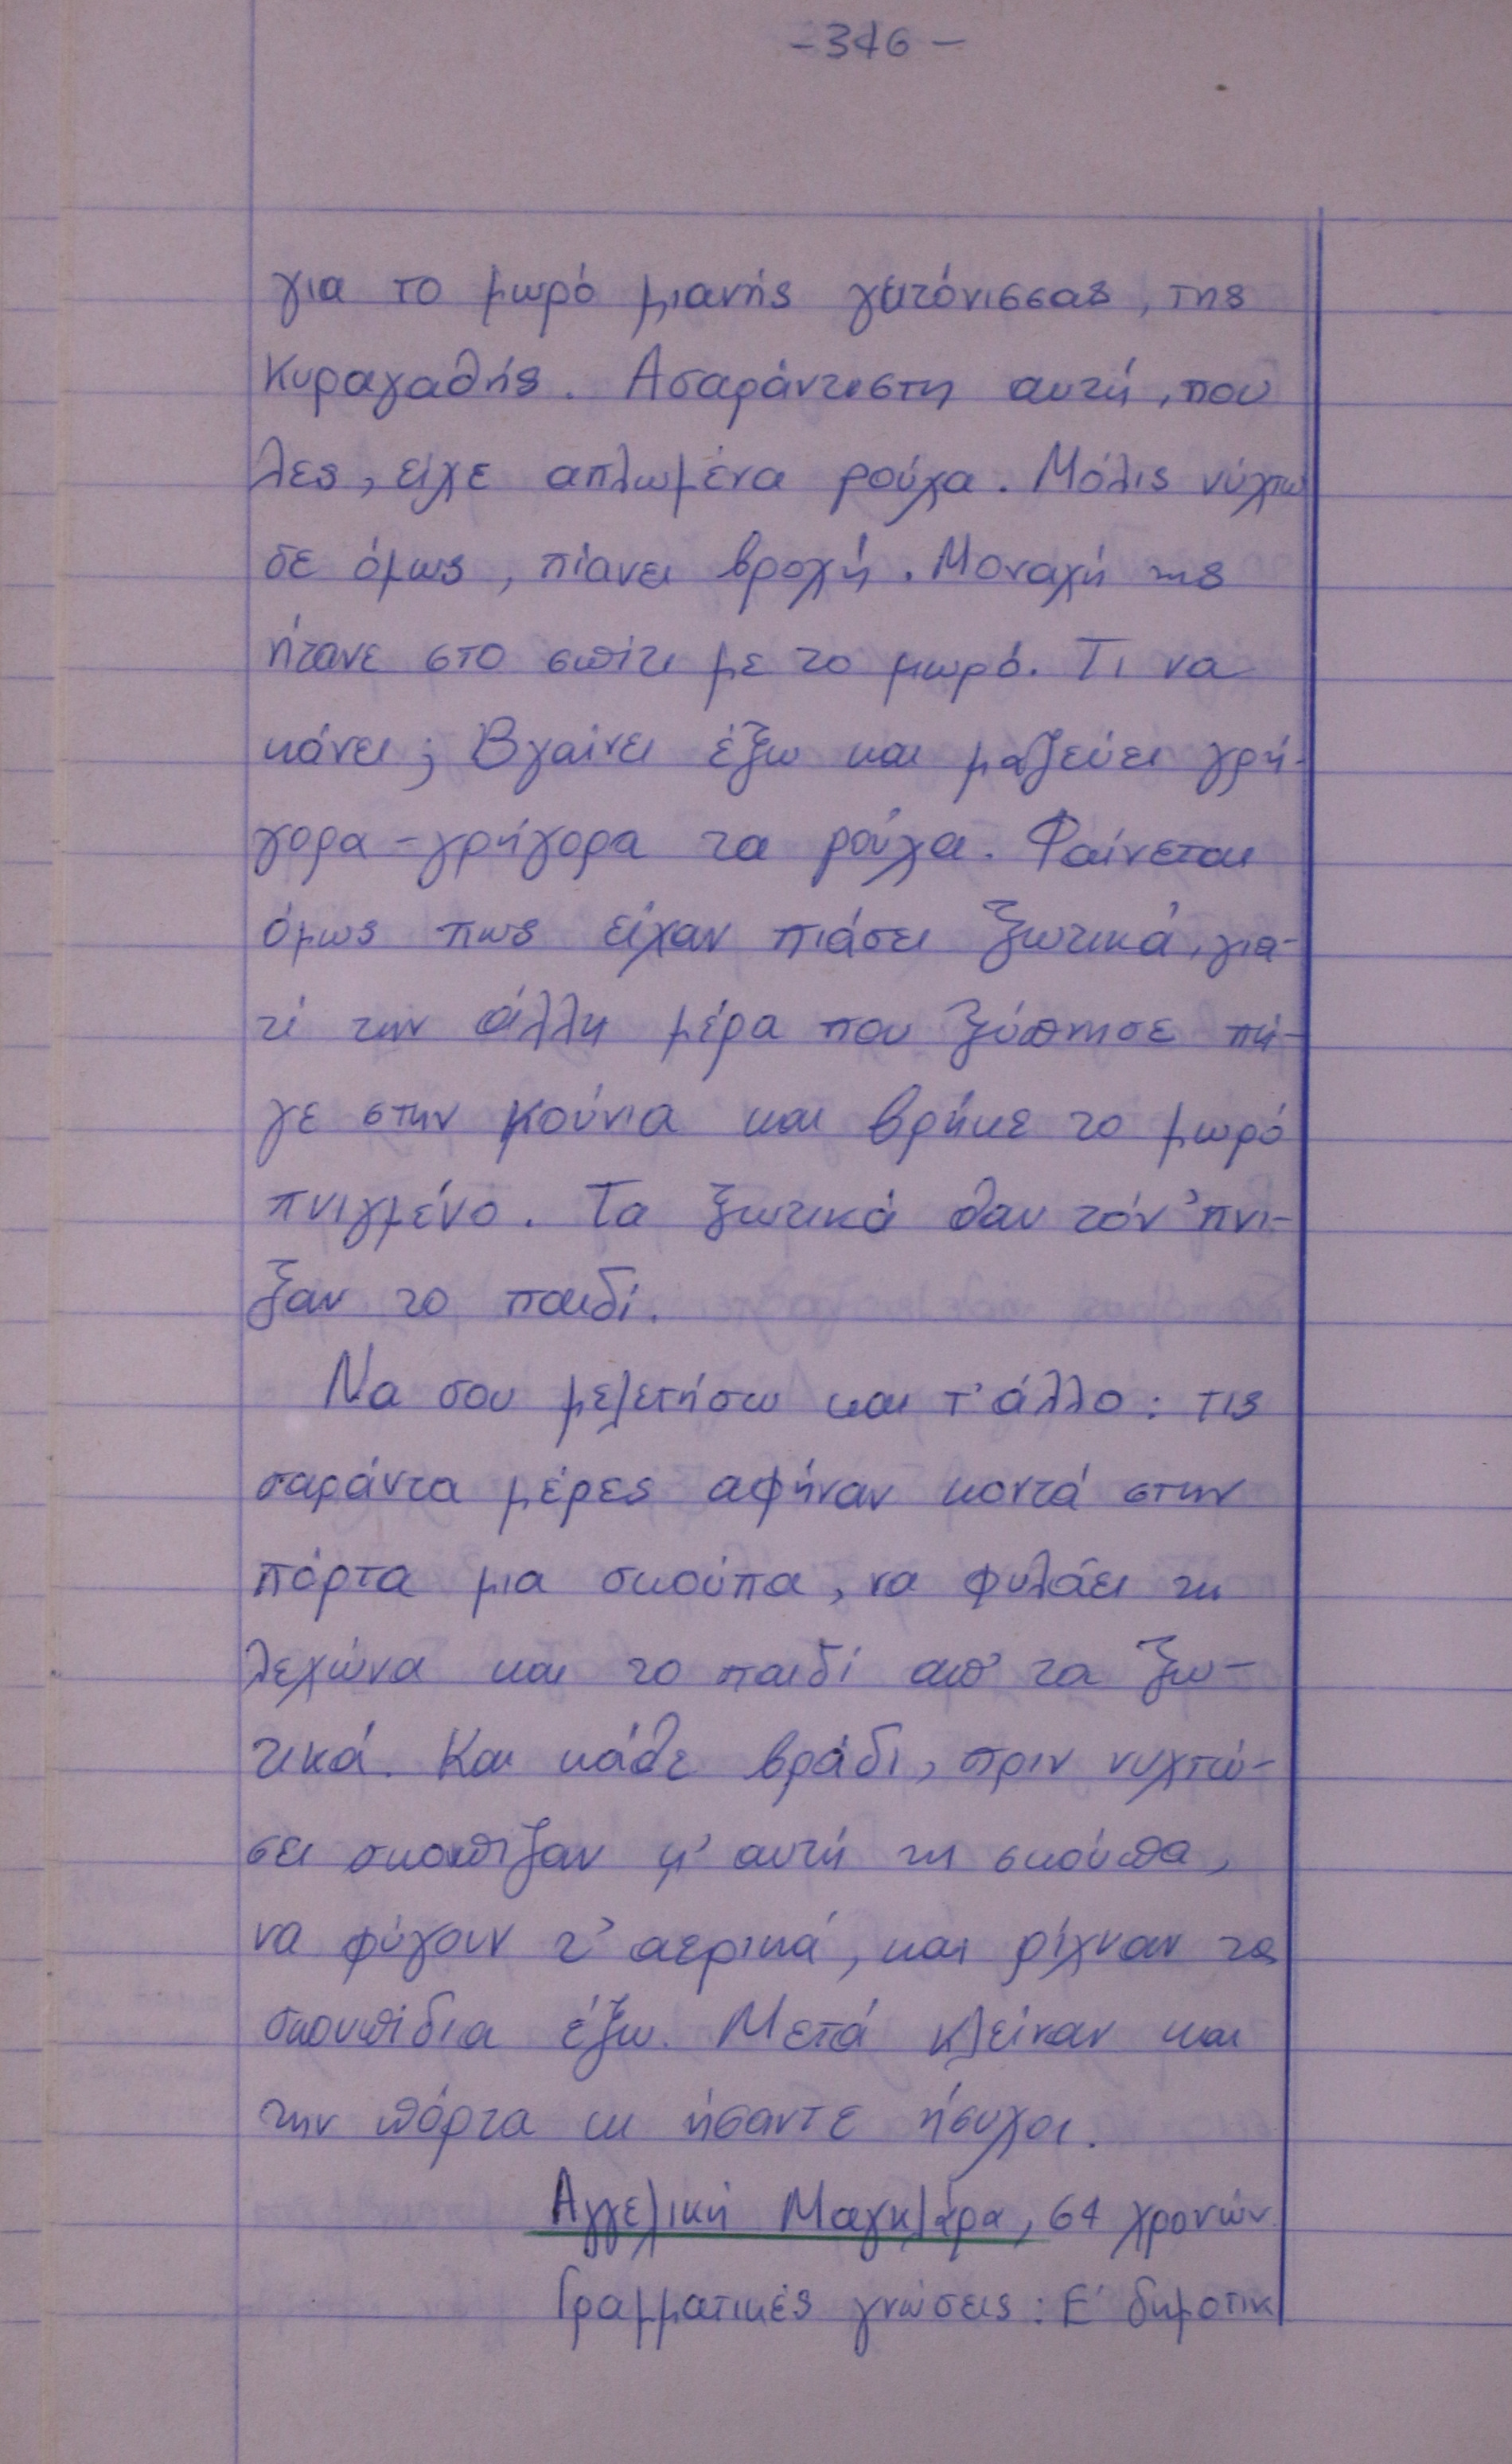 -346-
για το μωρό μιανής γειτόνισσας, της
Κυραγαθής. Ασαράντιστη αυτή, που
λες, είχε απλωμένα ρούχα. Μόλις νύχτω
σε όμως, πιάνει βροχή. Μοναχή της
ήτανε στο σπίτι με το μωρό. Τι να
κάνει; Βγαίνει έξω και μαζεύει γρή-
γορα-γρήγορα τα ρούχα. Φαίνεται
όμως πως είχαν πιάσει ξωτικά, για-
τί την άλλη μέρα που ξύπνησε πή-
γε στην κούνια και βρήκε το μωρό
πνιγμένο. Τα ξωτικά θαν τόν 'πνι-
ξαν το παιδί.
Να σου μελετήσω και τ' άλλο: τις
σαράντα μέρες αφήναν κοντά στην
πόρτα μια σκούπα, να φυλάει τη
λεχώνα και το παιδί απ' τα ξω-
τικά. Και κάθε βράδι, πριν νυχτώ-
σει σκουπίζαν μ' αυτή τη σκούπα,
να φύγουν τ' αερικά, και ρίχναν τα
σκουπίδια έξω. Μετά κλείναν και
την πόρτα κι ήσαντε ήσυχοι.
Αγγελική Μαγκλάρα, 64 χρονών
Γραμματικές γνώσεις: Ε' δημοτικ